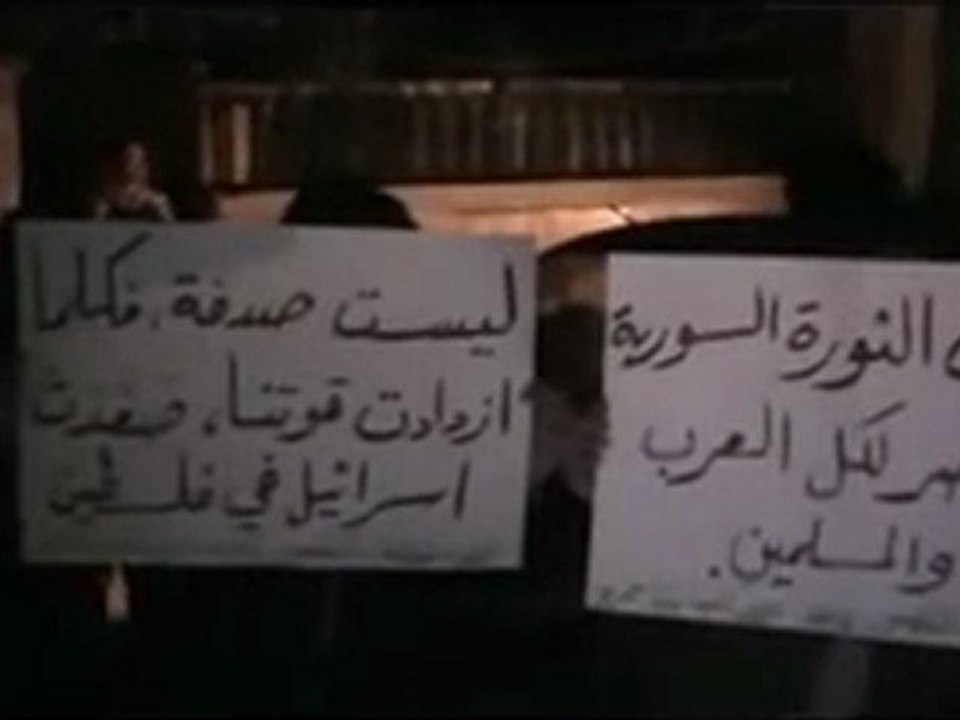 ليست صدفة، فكلما
ازدادت قوتنا، صعدت
اسرائيل في فلسطين
الثورة السورية
لكل العرب
والمسلمين.